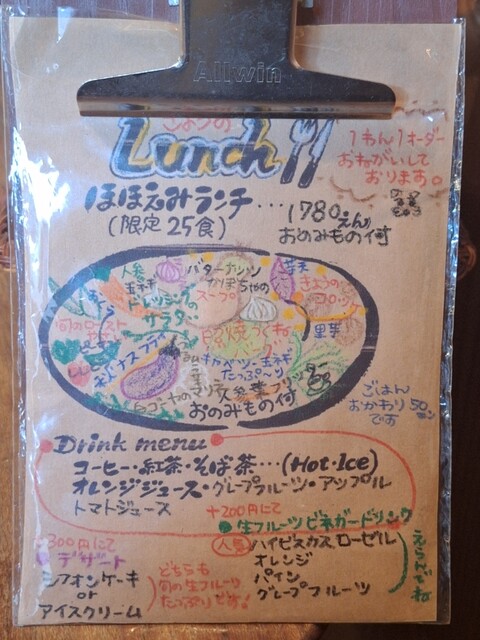 Allwin
きょうの
Lunch
1わん1オーダー
おねがいして
おります。
ほほえみランチ…1780えん
(限定25食)
おのみもの付
人参
玉ネギ
ドレッシングの
サラダ
バターナッツ
かぼちゃの
スープ
きょうの
コロッケ
里芋
旬のロースト
キャベツ・玉ネギ
たっぷ〜り
おのみもの付
ごはん
おかわり50エン
です
Drink menu
コーヒー・紅茶・そば茶…(Hot・Ice)
オレンジジュース・グレープフルーツ・アップル
トマトジュース
+200円にて
●生フルーツビネガードリンク
人気 ハイビスカスローゼル
オレンジ
パイン
グレープフルーツ
えらんでね
+300円にて
デザート
シフォンケーキ
or
アイスクリーム
どちらも
旬の生フルーツ
たっぷりです!